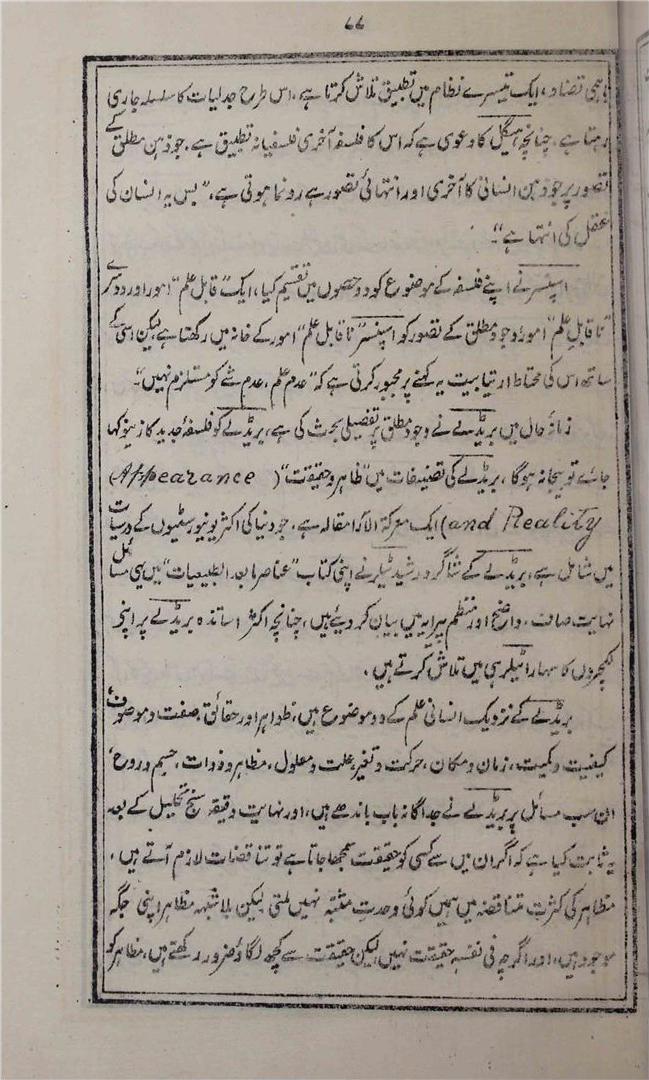 ۷۷
باہمی تضاد، ایک تیسرے نظام میں تطبیق تلاش کرتا ہے، اس طرح جدلیات کا سلسلہ جاری
رہتا ہے، چنانچہ ہیگل کا دعوی ہے کہ اس کا فلسفہ آخری فلسفیانہ تطبیق ہے، جو ذہن مطلق کے
تصور پر جو ذہن انسانی کا آخری اور انتہائی تصور ہے رونما ہوتی ہے، "بس یہ انسان کی
عقل کی انتہا ہے"۔
اسپنسر نے اپنے فلسفہ کے موضوع کو دو حصوں میں تقسیم کیا، ایک "قابل علم" امور اور دوسرے
"ناقابلِ علم" امور، وجود مطلق کے تصور کو اسپنسر "ناقابل علم" امور کے خانہ میں رکھتا ہے لیکن اسی کے
ساتھ اس کی محتاط ارتیابیت یہ کہنے پر مجبور کرتی ہے کہ "عدم علم، عدم شے کو مستلزم نہیں"۔
زمانۂ حال میں بریڈلے نے وجود مطلق پر تفصیلی بحث کی ہے، بریڈلے کو فلسفۂ جدید کا زینو کہا
جائے تو بیجا نہ ہوگا، بریڈلے کی تصنیفات میں "ظاہر و حقیقت" (Appearance
and Reality) ایک معرکۃ الآرا مقالہ ہے، جو دنیا کی اکثر یونیورسٹیوں کے درسیات
میں شامل ہے، بریڈلے کے شاگرد رشید ٹیلر نے اپنی کتاب "عناصر مابعد الطبیعیات" میں یہی مسائل
نہایت صاف، واضح اور منظم پیرایہ میں بیان کر دیئے ہیں، چنانچہ اکثر اساتذہ بریڈلے پر اپنی
لکچروں کا سہارا ٹیلر ہی میں تلاش کرتے ہیں،
بریڈلے کے نزدیک انسانی علم کے دو موضوع ہیں، ظواہر اور حقائق، صفت و موصوف،
کیفیت و کمیت، زمان و مکان، حرکت و تغیر، علت و معلول، مظاہر و ذوات، جسم و روح،
ان سب مسائل پر بریڈلے نے جداگانہ باب باندھے ہیں، اور نہایت دقیقہ سنج تحلیل کے بعد
یہ ثابت کیا ہے کہ اگر ان میں سے کسی کو حقیقت سمجھا جاتا ہے تو تناقضات لازم آتے ہیں،
مظاہر کی کثرتِ متناقضہ میں ہمیں کوئی وحدتِ مثبتہ نہیں ملتی لیکن بلا شبہہ مظاہر اپنی جگہ
موجود ہیں، اور اگرچہ فی نفسہٖ حقیقت نہیں لیکن حقیقت سے کچھ لگاؤ ضرور رکھتے ہیں، مظاہر کو